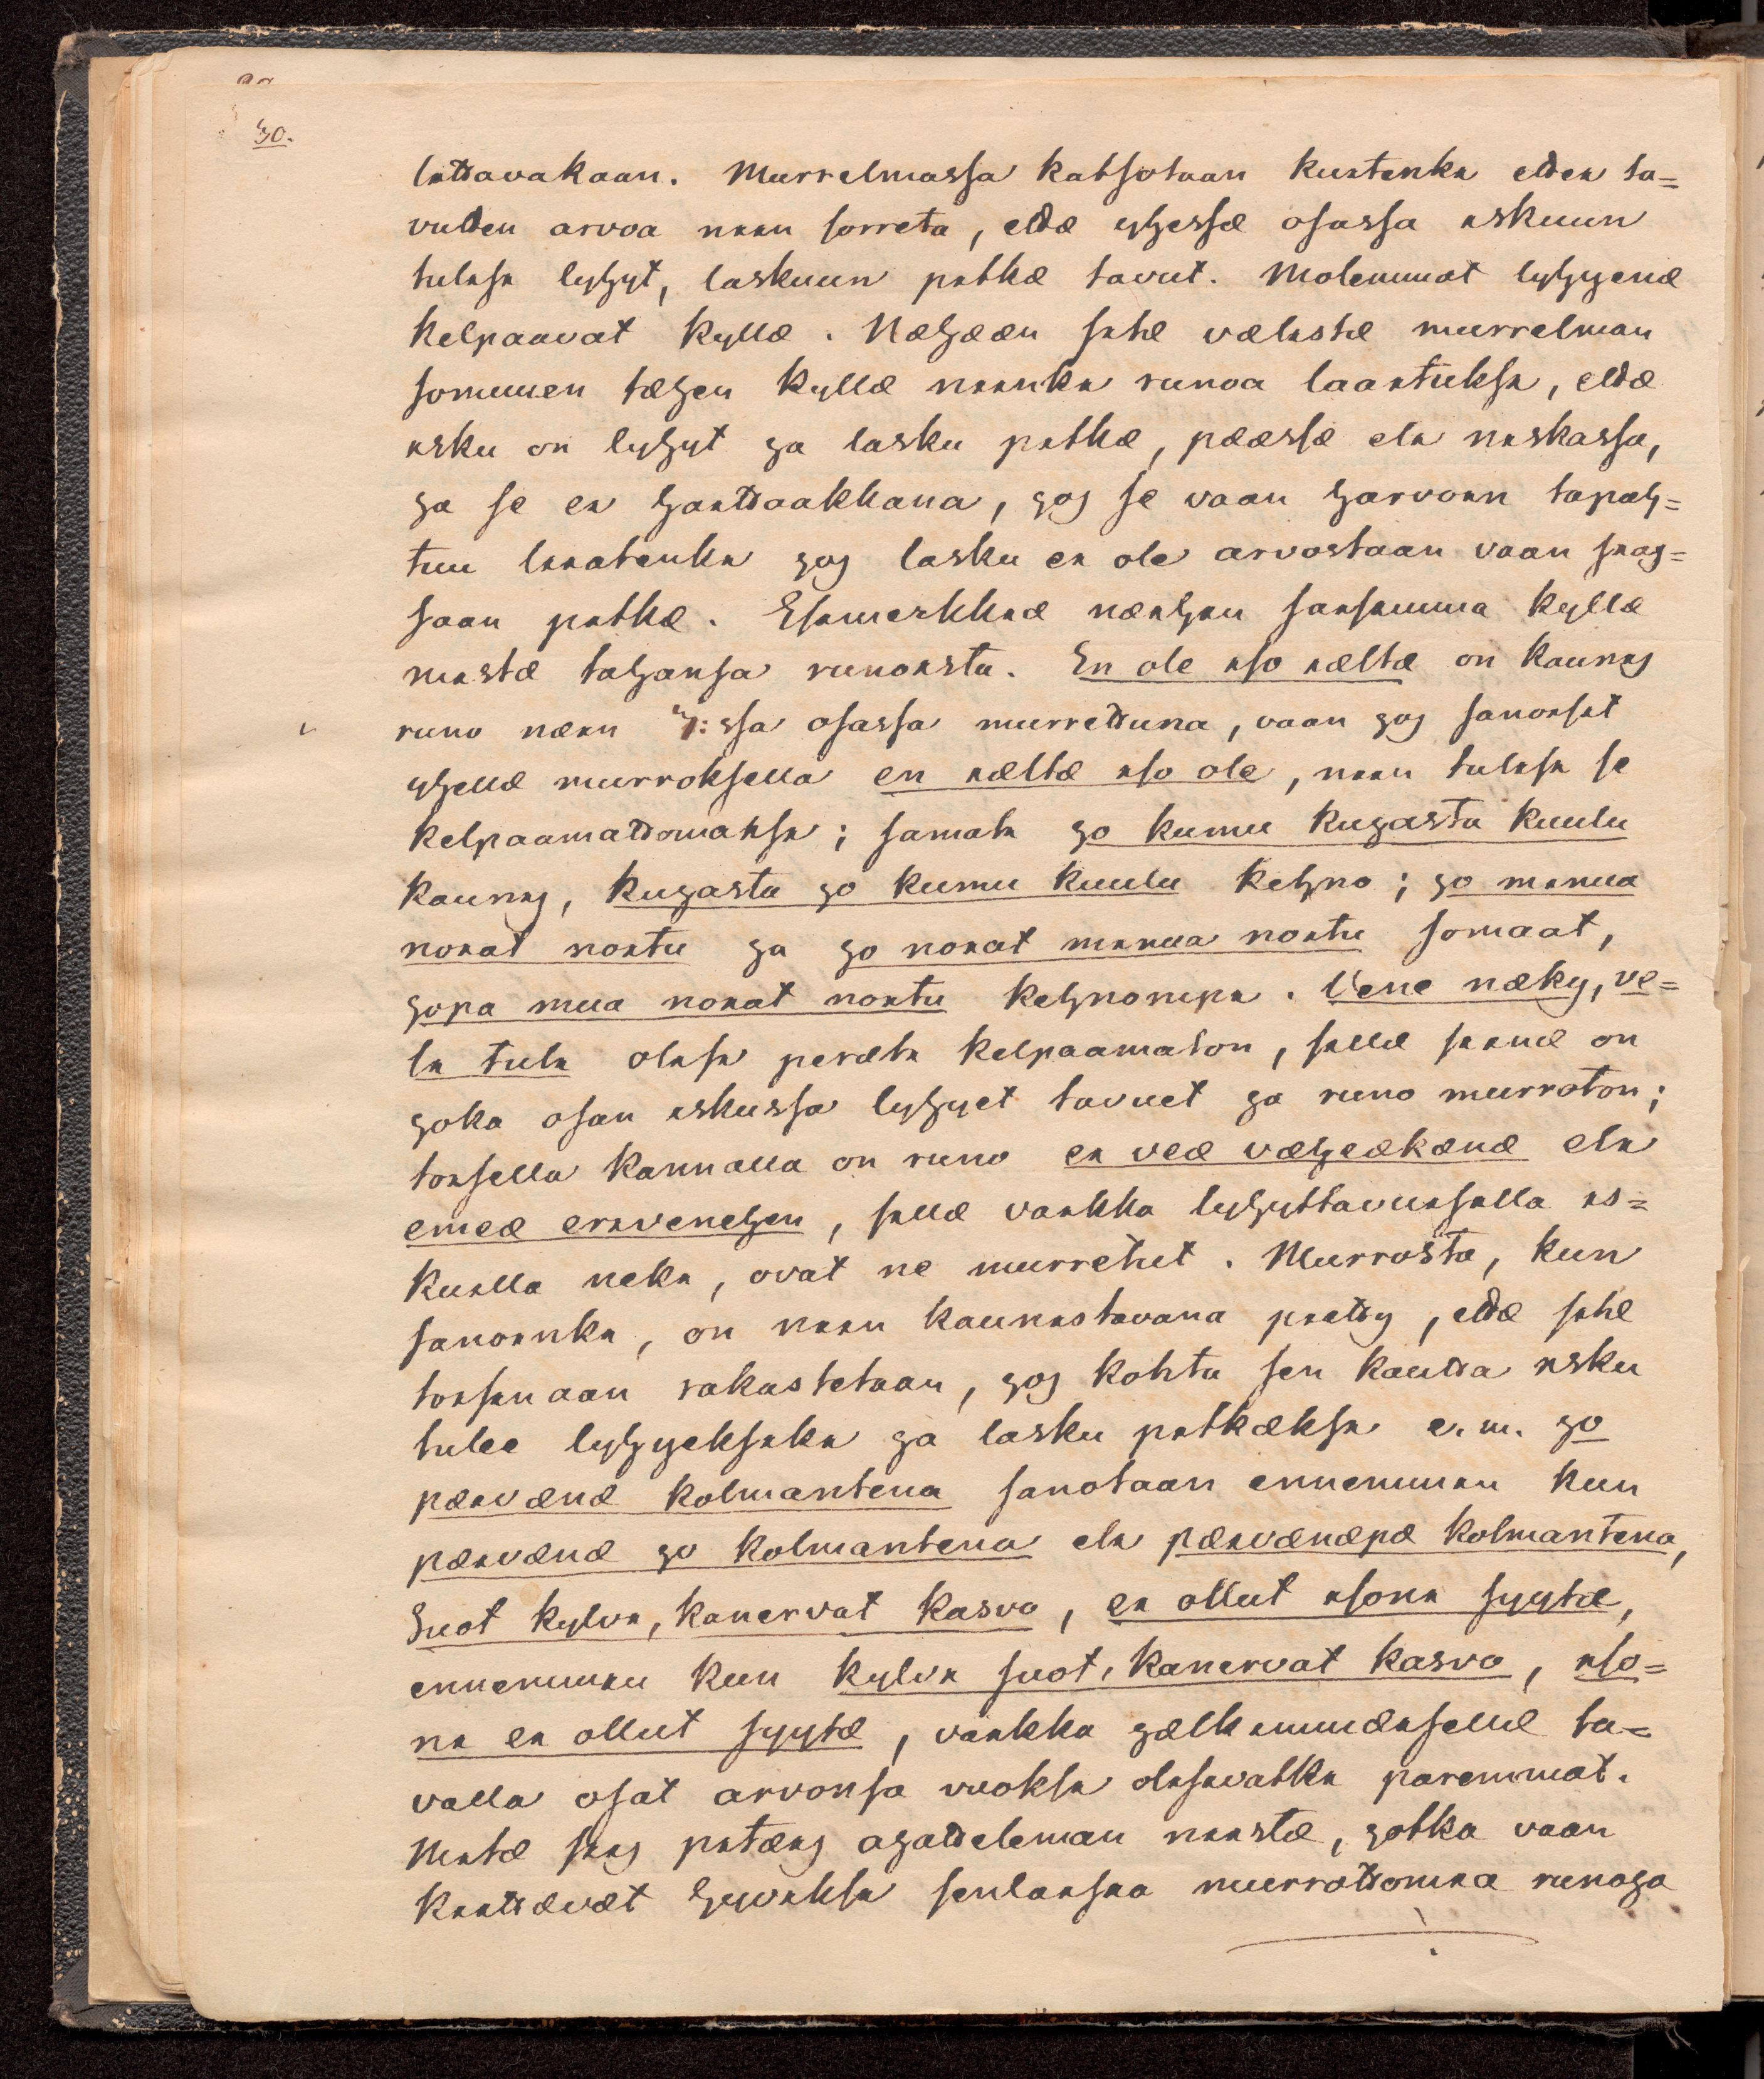 30.
littavakaan. Murrelmassa katsotaan kuitenki ettei ta=
vutten arvoa niin sorreta, ettæ yhessæ osassa iskuun
tulisi lyhyt, laskuun pitkæ tavut. Molemmat lyhyenæ
kelpaavat kyllæ. Næhææn sitæ vælistæ murrelman
somuuen tæhen kyllæ niinki runoa laaituksi, ettæ
isku on lyhyt ja lasku pitkæ, pææssæ eli niskassa,
ja se ei haittaakkana, jos se vaan harvoin tapah=
tuu liiatenki jos lasku ei ole arvostaan vaan sias=
saan pitkæ. Esimerkkiæ næihin saisimma kyllæ
mistæ tahansa runoista. Ei ole iso iæltæ on kaunis
runo næin 3:ssa osassa murrettuna, vaan jos sanoisit
yhellæ murroksella ei iæltæ iso ole, niin tulisi se
kelpaamattomaksi; samati jo kumu kujasta kuulu
kaunis, kujasta jo kumu kuulu kehno; jo minua
noiat noitu ja jo noiat minua noitu somaat,
jopa mua noiat noitu kehnompi. Vene næky, ve=
li tuli olisi peræti kelpaamaton, sillæ siinæ on
joka osan iskussa lyhyet tavuet ja runo murroton;
toisella kannalla on runo ei veæ væheækænæ eli
emeæ erivenehen, sillæ vaikka lyhyttavuisilla is=
kuilla neki, ovat ne murretut. Murrosta, kun
sanoinki, on niin kaunistavana piætty, ettæ sitæ
toisinaan rakastetaan, jos kohta sen kautta isku
tulee lyhyeksiki ja lasku pitkæksi e. m. jo
pæivænæ kolmantena sanotaan ennemmin kun
pæivænæ jo kolmantena eli pæivænæpæ kolmantena,
Suot kylvi, kanervat kasvo, ei ollut isoni syytæ,
ennemmin kun kylvi suot, kanervat kasvo, iso=
ni ei ollut syytæ, vaikka jælkimmæisellæ ta=
valla osat arvonsa vuoksi olisivatki paremmat.
Mitæ siis pitæis ajatteleman niistæ, jotka vaan
kiittævæt hyviksi senlaisia murrottomia runoja